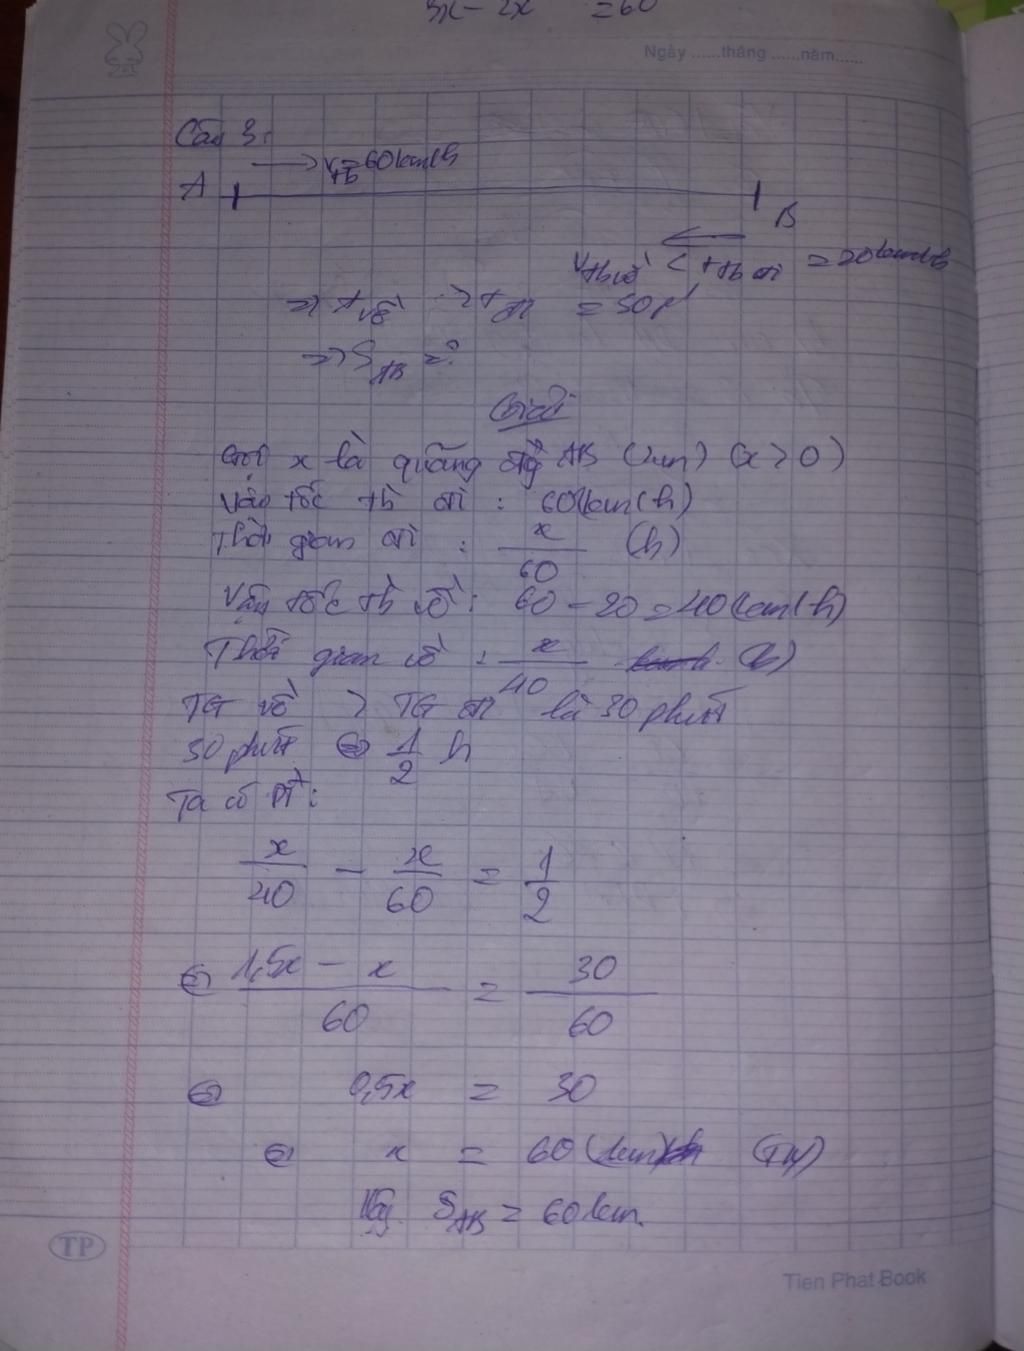 3x - 2x = 60
Ngày ......tháng ......năm......
Câu 3:
Vtb = 60km/h
A
B
Vtb về < Vtb đi = 20km/h
=> t về > t đi = 30p'
=> SAB = ?
Giải
Gọi x là quãng đg AB (km) (x > 0)
Vận tốc tb đi : 60km/h)
Thời gian đi : x/60 (h)
Vận tốc tb về : 60 - 20 = 40 (km/h)
Thời gian về : x/40 (h)
TG về > TG đi là 30 phút
30 phút = 1/2 h
Ta có PT:
x/40 - x/60 = 1/2
⇔ (1,5x - x)/60 = 30/60
⇔ 0,5x = 30
⇔ x = 60 (km) (TM)
Vậy SAB = 60km.
TP
Tien Phat Book